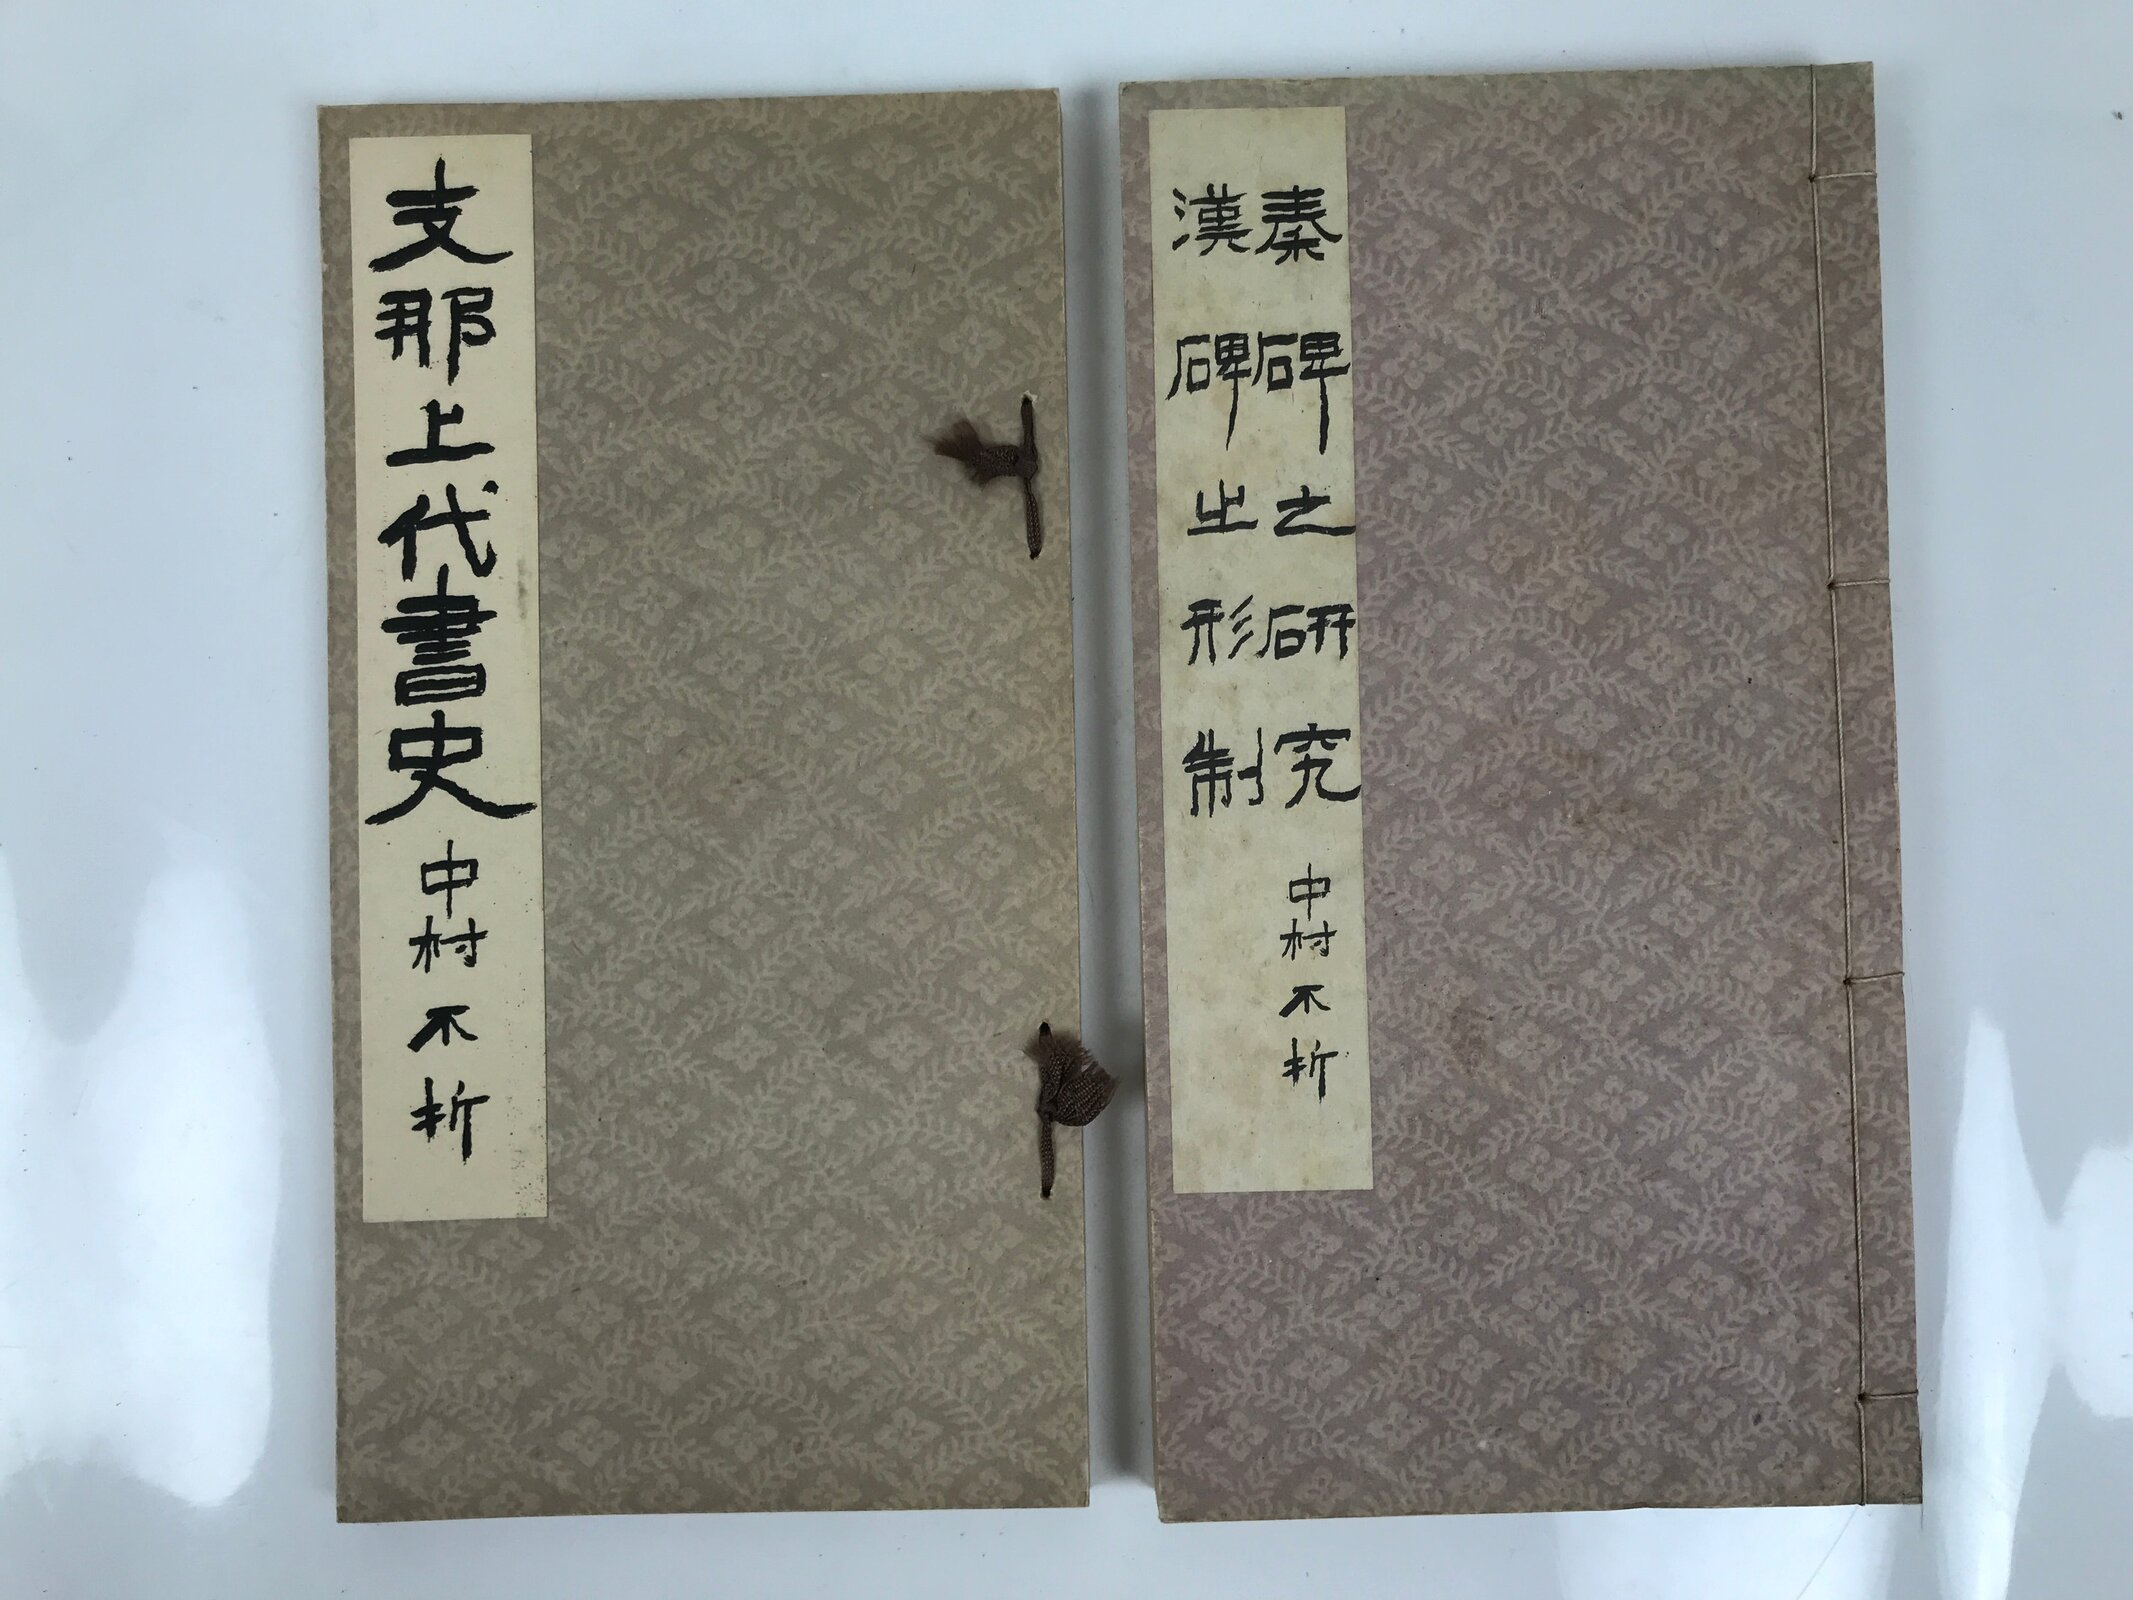 支那上代書史 中村不折
秦碑之研究 中村不折
漢碑之形制